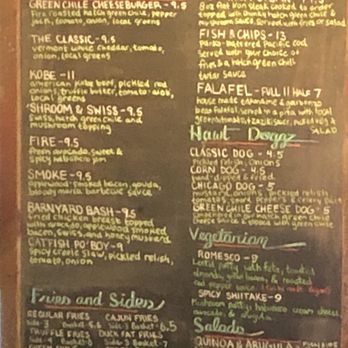 GREEN CHILE CHEESEBURGER - 9.5
fire roasted hatch green chile, pepper
jack, tomato, onion, local greens
THE CLASSIC - 9.5
vermont white cheddar, tomato,
onion, local greens
KOBE - 11
american kobe beef, pickled red
onions, truffle butter, tomato
local greens
SHROOM & SWISS - 9.5
swiss, hatch green chile and
mushroom topping
FIRE - 9.5
fresh avocado, sweet &
spicy habanero jam
SMOKE - 9.5
applewood smoked bacon, gouda,
bloody maria barbecue sauce
BARNYARD BASH - 9.5
fried chicken breast, topped
with avocado, applewood smoked
bacon, swiss and honey mustard
CATFISH PO' BOY - 9
spicy creole slaw, pickled relish,
tomato, onion
Fries and Sides
REGULAR FRIES CAJUN FRIES
side-3 Basket-5.5 side 3 Basket-6.5
TRUFFLE FRIES DUCK FAT FRIES
8oz flat iron steak cooked to order
topped with hatch green chile &
mushroom sauce, served with fries or salad
FISH & CHIPS - 13
panko-battered pacific cod
served with your choice of
fries & a hatch green chili
tartar sauce
FALAFEL - FULL 11 HALF 7
house made edamame & garbanzo
bean falafel served w/ a pita, with local
SALAD
Hawt Doggz
CLASSIC DOG - 4.5
pickled relish, onions
CORN DOG - 4.5
hand-dipped & fried
CHICAGO DOG - 5
mustard, onions, pickled relish
tomatoes, sport peppers & celery salt
GREEN CHILE CHEESE DOG - 5
smothered in our hatch green chile
cheese sauce & topped with green chile
Vegetarian
ROMESCO - 9
lentil patty with feta, toasted
almonds, julienne, & roasted
red pepper sauce
SPICY SHIITAKE - 9
mushroom patty, habanero cream cheese,
avocado, &
Salads
QUINOA & ARUGULA